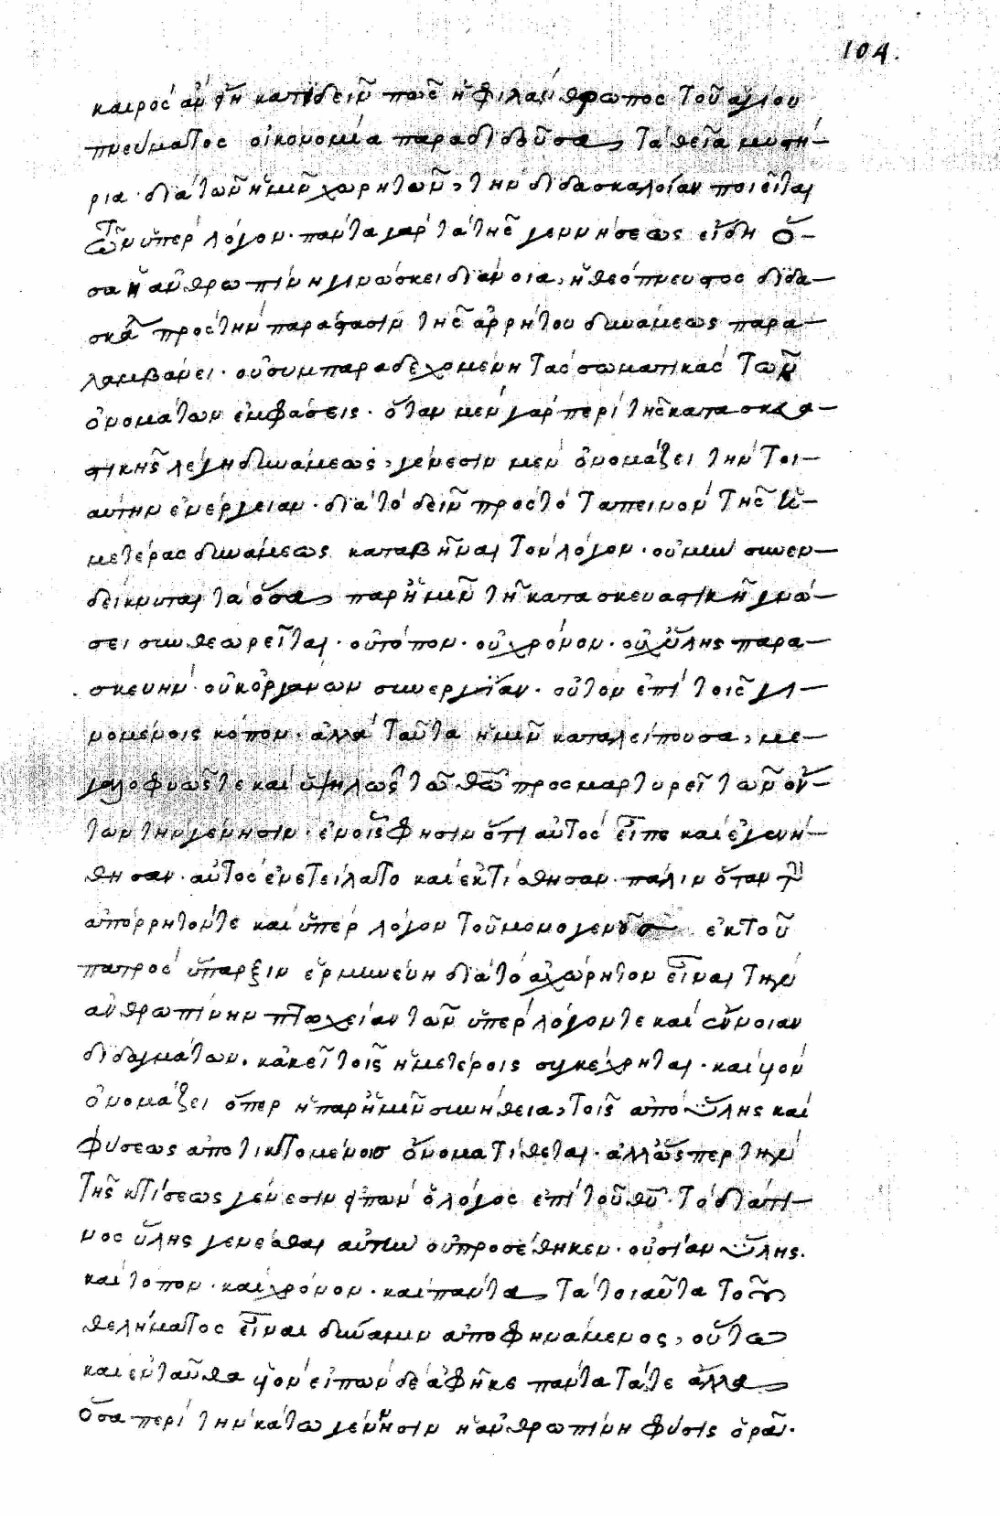 104.
καιρὸς ἂν εἴη κατιδεῖν πῶς ἡ φιλάνθρωπος τοῦ ἁγίου
πνεύματος οἰκονομία παραδιδοῦσα τὰ θεῖα μυστή-
ρια· διὰ τῶν ἡμῖν χωρητῶν, τὴν διδασκαλίαν ποιεῖται
τῶν ὑπὲρ λόγον· πάντα γὰρ τὰ τῆς γεννήσεως εἴδη ὅ-
σα ἡ ἀνθρωπίνη γινώσκει διάνοια, ἡ θεόπνευστος διδα-
σκαλία πρὸς τὴν παράστασιν τῆς ἀρρήτου δυνάμεως παρα-
λαμβάνει· οὐ συμπαραδεχομένη τὰς σωματικὰς τῶν
ὀνομάτων ἐμφάσεις· ὅταν μὲν γὰρ περὶ τῆς κατασκευα-
στικῆς λέγη δυνάμεως, γένεσιν μὲν ὀνομάζει τὴν τοι-
αύτην ἐνέργειαν· διὰ τὸ δεῖν πρὸς τὸ ταπεινὸν τῆς ἡ-
μετέρας δυνάμεως καταβῆναι τὸν λόγον· οὐ μὴν συνεν-
δείκνυται τὰ ὅσα παρ' ἡμῖν τῇ κατασκευαστικῇ γνώ-
σει συνθεωρεῖται· οὐ τόπον· οὐ χρόνον· οὐχ ὕλης παρα-
σκευήν· οὐκ ὀργάνων συνεργίαν· οὐ τὸν ἐπὶ τοῖς γι-
νομένοις κόπον· ἀλλὰ ταῦτα ἡμῖν καταλείπουσα, με-
γαλοφυῶς τε καὶ ὑψηλῶς τῷ θῶ προσμαρτυρεῖ τῶν ὄν-
των τὴν γένησιν· ἐν οἷς φησιν ὅτι αὐτὸς εἶπε καὶ ἐγενή-
θησαν· αὐτὸς ἐνετείλατο καὶ ἐκτίσθησαν· πάλιν ὅταν τὴν
ἀπόρρητόν τε καὶ ὑπὲρ λόγον τοῦ μονογενοῦς ἐκ τοῦ
πατρὸς ὕπαρξιν ἑρμηνεύη διὰ τὸ ἀχώρητον εἶναι τὴν
ἀνθρωπίνην πτωχείαν τῶν ὑπὲρ λόγον τε καὶ ἔννοιαν
διδαγμάτων, κἀκεῖ τοῖς ἡμετέροις συγκέχρηται· καὶ υἱὸν
ὀνομάζει ὅπερ ἡ παρ' ἡμῖν συνήθεια, τοῖς ἀπὸ ὕλης καὶ
φύσεως ἀποτικτομένοις ὄνομα τίθεται· ἀλλ' ὥσπερ τὴν
τῆς κτίσεως γένεσιν εἰπὼν ὁ λόγος ἐπὶ τοῦ θῦ· τὸ διά τι-
νος ὕλης γενέσθαι αὐτὴν οὐ προσέθηκεν· οὐσίαν ὕλης.
καὶ τόπον· καὶ χρόνον· καὶ πάντα τὰ τοιαῦτα τοῦ
θελήματος εἶναι δύναμιν ἀποφηνάμενος, οὕτω
καὶ ἐνταῦθα υἱὸν εἰπὼν δὲ ἀφῆκε πάντα τά τε ἄλλα
ὅσα περὶ τὴν κάτω γέννησιν ἡ ἀνθρωπίνη φύσις ὁρᾷ·